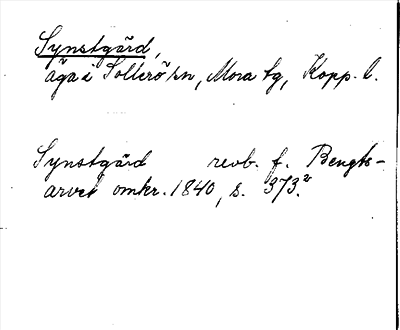 Synstgård,
äga i Sollerö sn, Mora tg, Kopp. l.
Synstgård revb. f. Bengts-
arvet omkr. 1840, s. 373.²